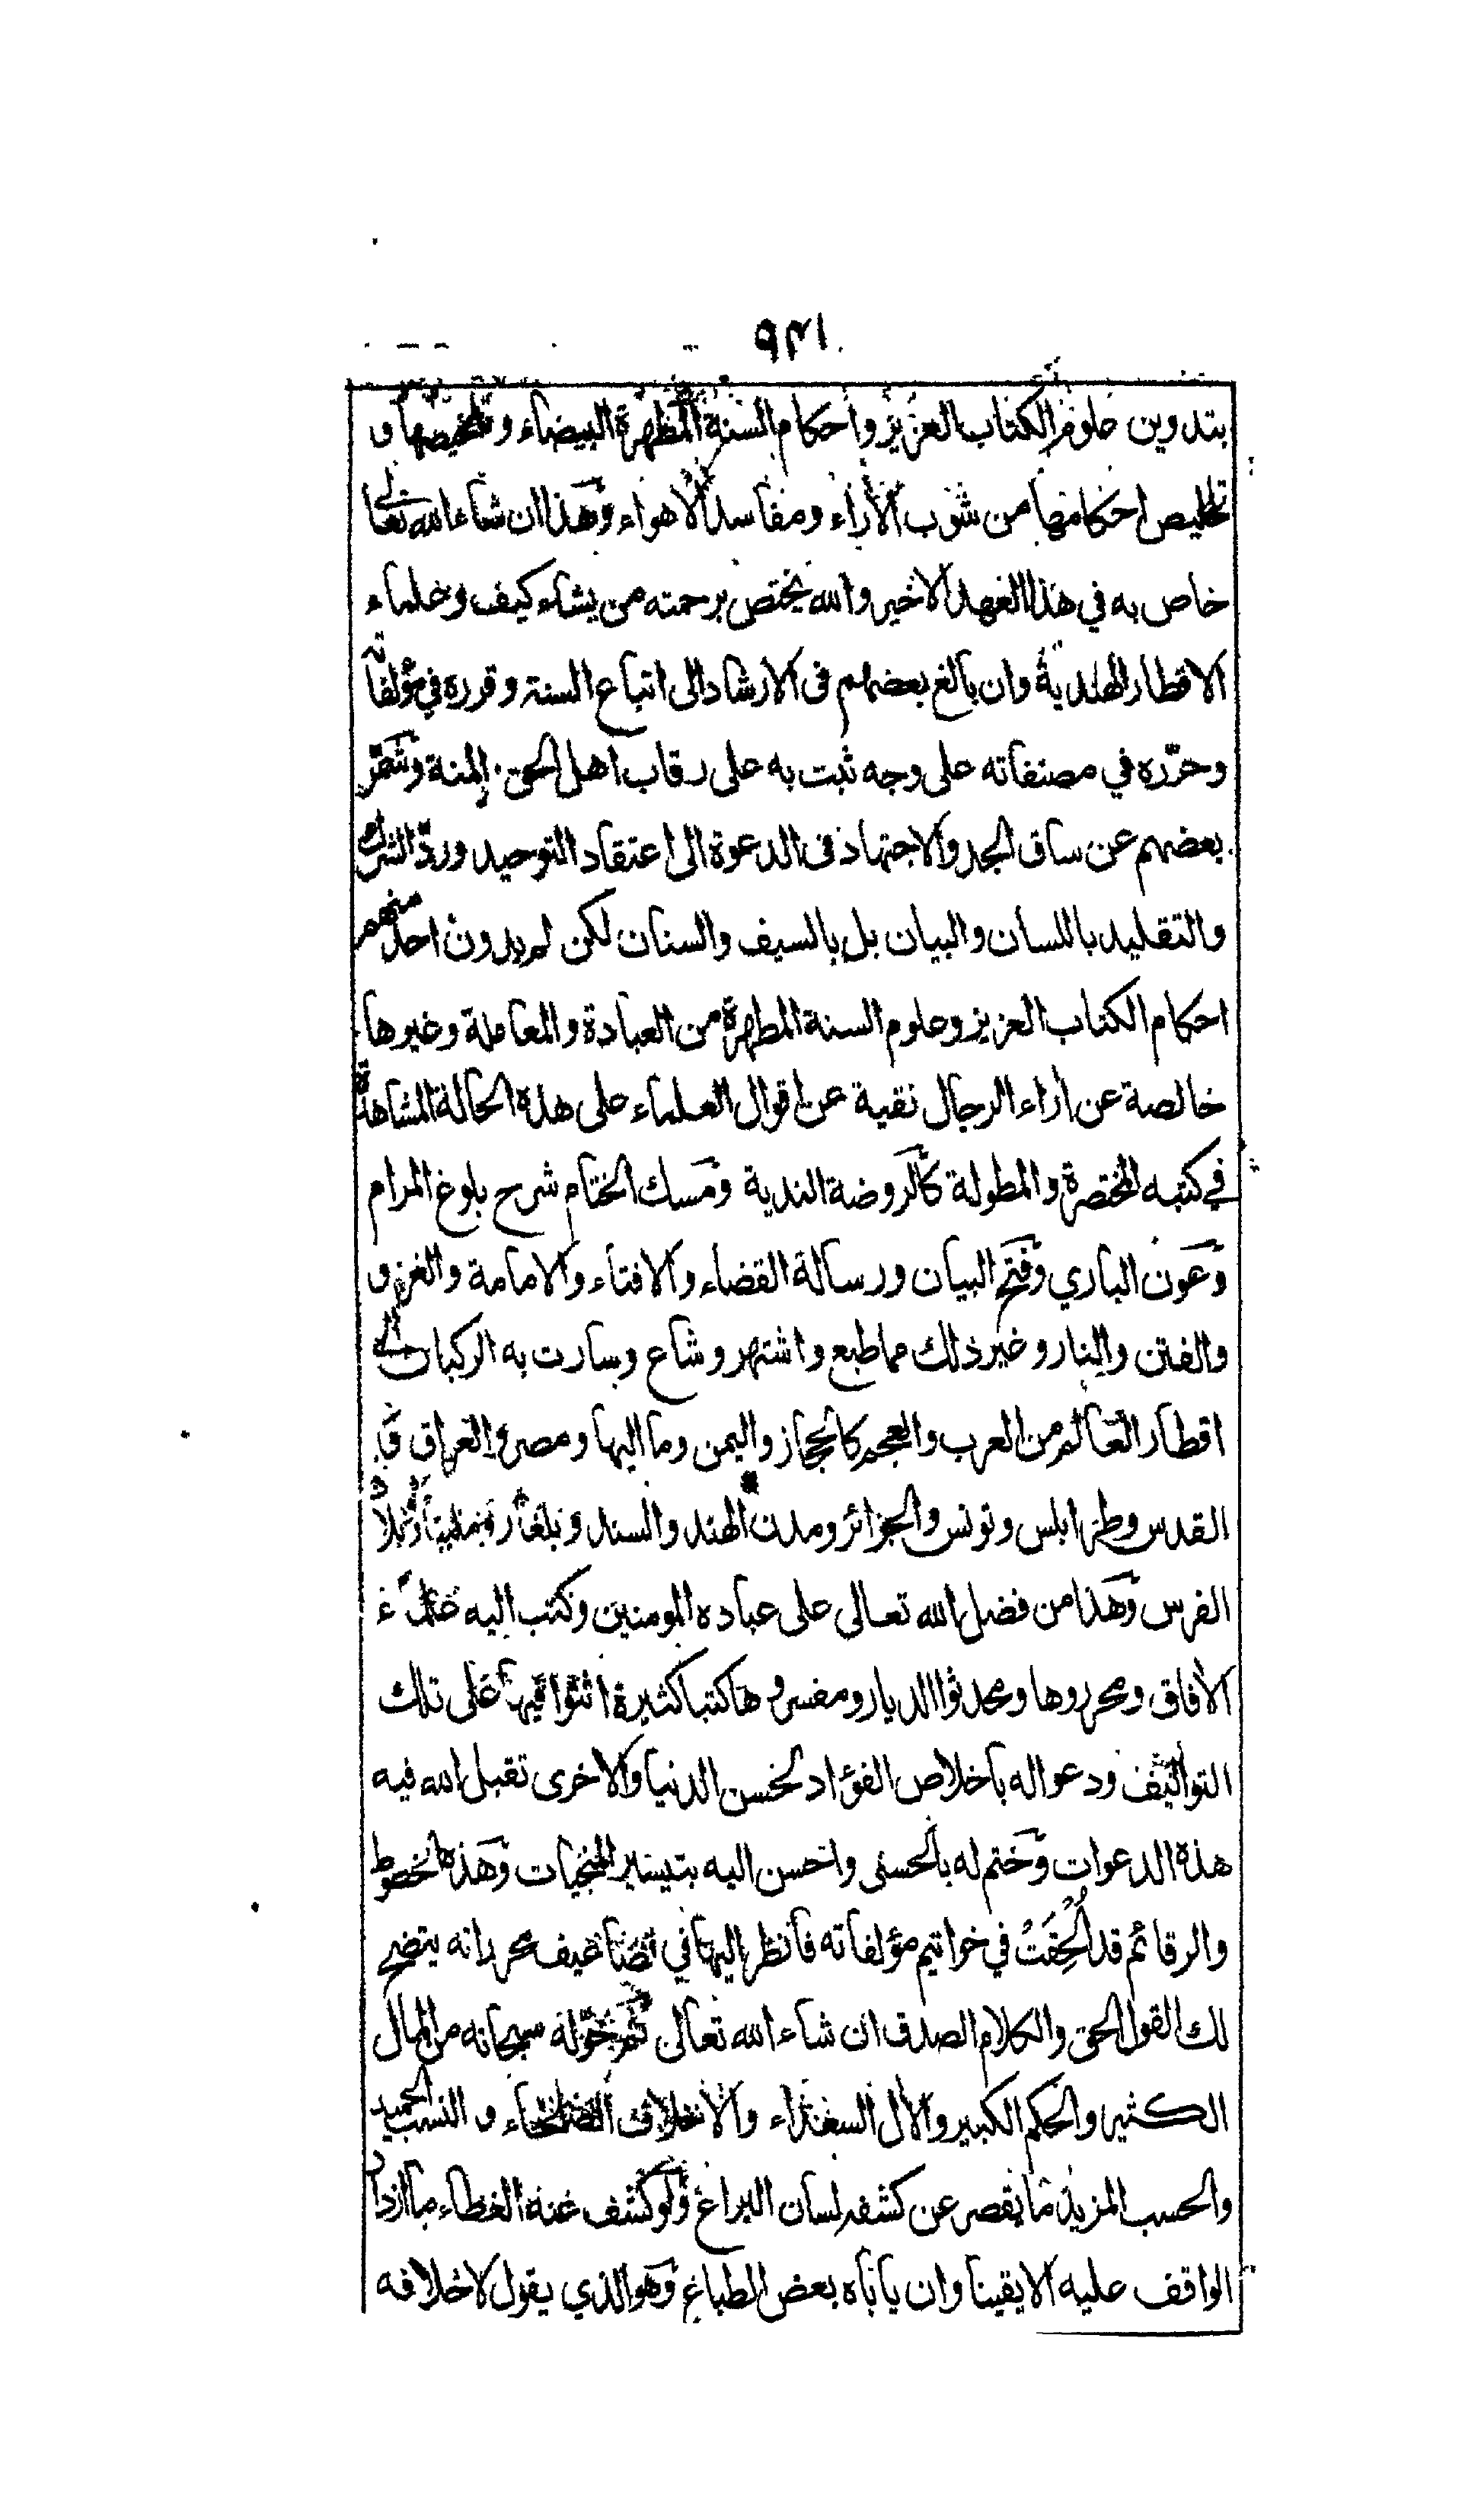 ٩٣١
بتدوين علوم الكتاب العزيز واحكام السنة المطهرة البيضاء وتلخيصها و
تخليص احكامها من شوب الأراء ومفاسد الاهواء وهذا ان شاء الله تعالى
خاص به في هذا العهد الاخير والله يختص برحمته من يشاء كيف وعلماء
الاقطار الهندية وان بالغ بعضهم فى الارشاد الى اتباع السنة وقرره في مؤلفاته
وحرّره في مصنفاته على وجه ثبت به على رقاب اهل الحق المنة وشمّر
بعضهم عن ساق الجد والاجتهاد فى الدعوة الى اعتقاد التوحيد وردّ الشرك
والتقليد باللسان والبيان بل بالسيف والسنان لكن لم يدون احد منهم
احكام الكتاب العزيز وعلوم السنة المطهرة من العبادة والمعاملة وغيرها
خالصة عن أراء الرجال نقية عن اقوال العلماء على هذه الحالة المشاهدة
في كتبه المختصرة والمطولة كالروضة الندية ومسك الختام شرح بلوغ المرام
وعون الباري وفتح البيان ورسالة القضاء والافتاء والامامة والغزو
والفتن والنار وغير ذلك مما طبع واشتهر وشاع وسارت به الركبان الى
اقطار العالم من العرب والعجم كالحجاز واليمن وما اليها ومصر والعراق و
القدس وطرابلس وتونس والجزائر ومدن الهند والسند وبلغار وبلاد
الفرس وهذا من فضل الله تعالى على عباده المومنين وكتب اليه علماء
الأفاق ومحرروها ومحدثوا الديار ومفسروها كتبا كثيرة اثنوا فيها على تلك
التواليف ودعوا له باخلاص الفؤاد لحسن الدنيا والاخرى تقبل الله فيه
هذه الدعوات وختم له بالحسنى واحسن اليه بتيسير المنجيات وهذه الخطوط
والرقائم قد أُلحِقَتْ في خواتيم مؤلفاته فانظر اليها في تضاعيف محرراته يتضح
لك القول الحق والكلام الصدق ان شاء الله تعالى ثم خوّله سبحانه من المال
الكثير والحكم الكبير والأل السعداء والاخلاف الصلحاء و النسب الحميد
والحسب المزيد ما يقصر عن كشفه لسان اليراع ولو كشف عنه الغطاء ما ازداد
الواقف عليه الا يقينا وان يأباه بعض الطباع وهو الذي يقول لاخلافه